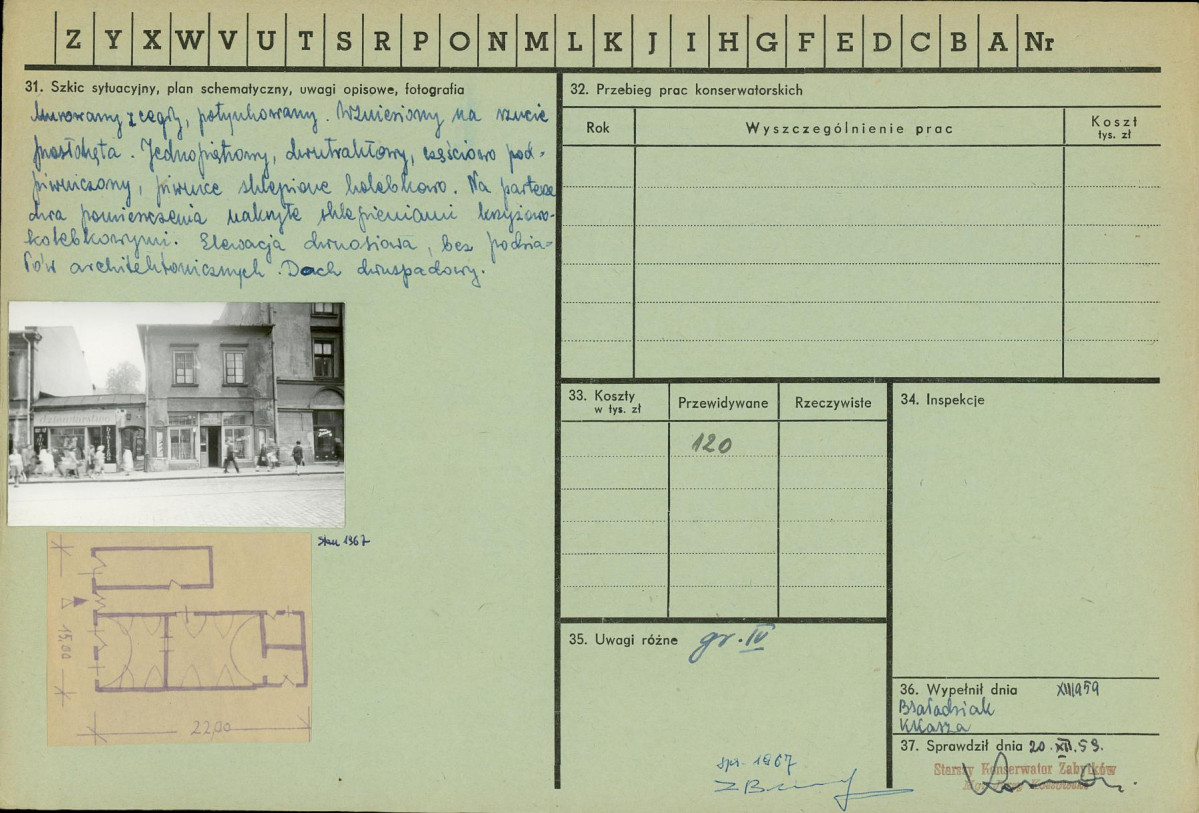 Z Y X W V U T S R P O N M L K J I H G F E D C B A Nr
31. Szkic sytuacyjny, plan schematyczny, uwagi opisowe, fotografia
Murowany z cegły, potynkowany. Wzniesiony na rzucie
prostokąta. Jednopiętrowy, dwutraktowy, częściowo pod-
piwniczony, piwnice sklepione kolebkowo. Na parterze
dwa pomieszczenia nakryte sklepieniami krzyżowo-
kolebkowymi. Elewacja dwuosiowa, bez podzia-
łów architektonicznych. Dach dwuspadowy.
Stan 1967
15,00
22,00
32. Przebieg prac konserwatorskich
Rok
Wyszczególnienie prac
Koszt
tys. zł
33. Koszty
w tys. zł
Przewidywane
Rzeczywiste
120
34. Inspekcje
35. Uwagi różne gr. IV
spr. 1967
36. Wypełnił dnia XII 1959
37. Sprawdził dnia 20.XII.59.
Starszy Konserwator Zabytków